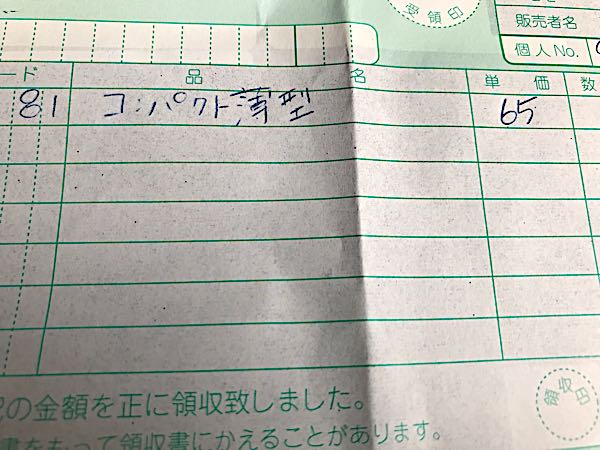 受領印
販売者名
個人No.
ード 品名 単価 数
81 コンパクト薄型 65
の金額を正に領収致しました。
書をもって領収書にかえることがあります。
領収印